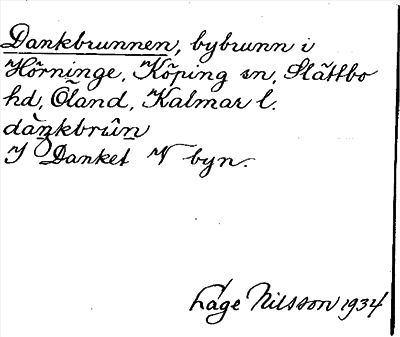 Dankbrunnen, bybrunn i
Hörninge, Köping sn, Slättbo
hd, Öland, Kalmar l.
dàŋkbrûn
I Danket V byn.
Åge Nilsson 1934